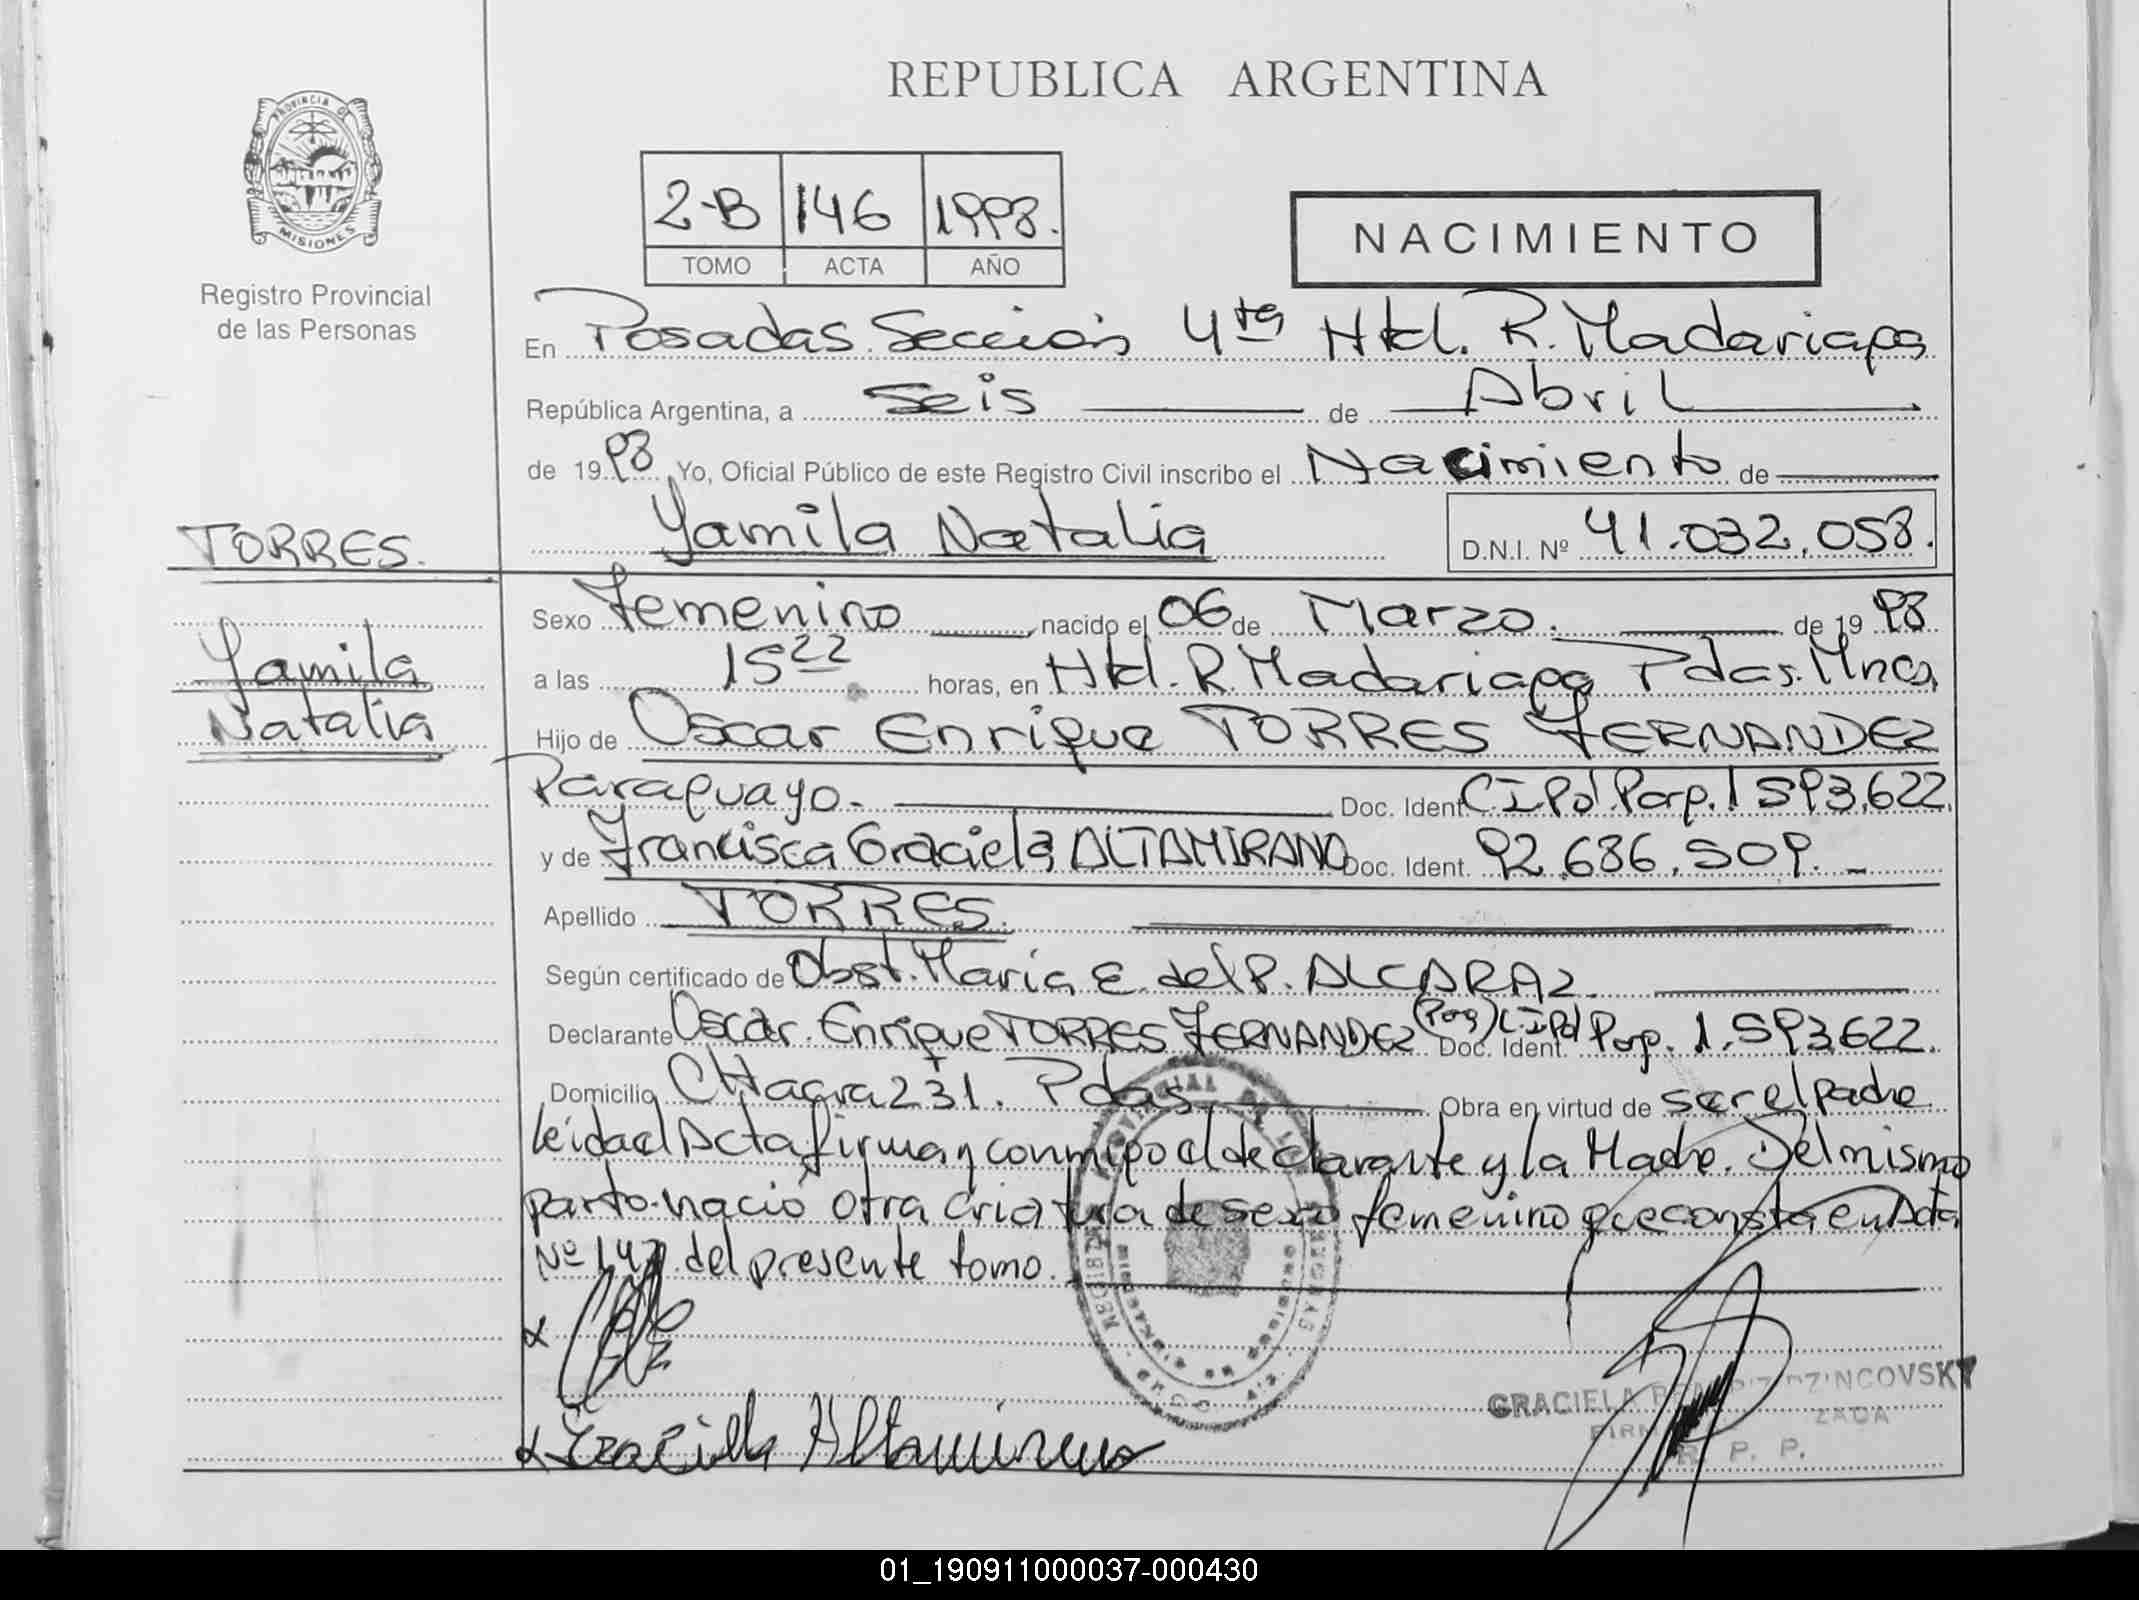 REPUBLICA ARGENTINA
PROVINCIA DE
MISIONES
Registro Provincial
de las Personas
2-B 146 1998.
TOMO ACTA AÑO
NACIMIENTO
En Posadas. Sección 4ta Htal. R. Madariaga
República Argentina, a Seis de Abril
de 1998 Yo, Oficial Público de este Registro Civil inscribo el Nacimiento de
Yamila Natalia D.N.I. Nº 41.032.058.
TORRES.
Yamila
Natalia
Sexo Femenino nacido el 06 de Marzo. de 1998
a las 15 22 horas, en Htal. R. Madariaga Pdas. Mnes.
Hijo de Oscar Enrique TORRES FERNANDEZ
Paraguayo. Doc. Ident. C.I.Pol. Parg. 1593.622.
y de Francisca Graciela ALTAMIRANO Doc. Ident. 92.686.509.
Apellido TORRES.
Según certificado de Obst. Maria E. del P. ALCARAZ.
Declarante Oscar Enrique TORRES FERNANDEZ (Parg) C.I.Pol Doc. Ident. Parg. 1.593622.
Domicilio CHacra 231. Pdas Obra en virtud de ser el padre
leida el Acta firman conmigo el declarante y la Madre. Del mismo
parto nació otra criatura de sexo femenino que consta en Acta
Nº 147. del presente tomo.
Graciela Altamirano
GRACIELA DZINCOVSKY
R. P. P.
01_190911000037-000430